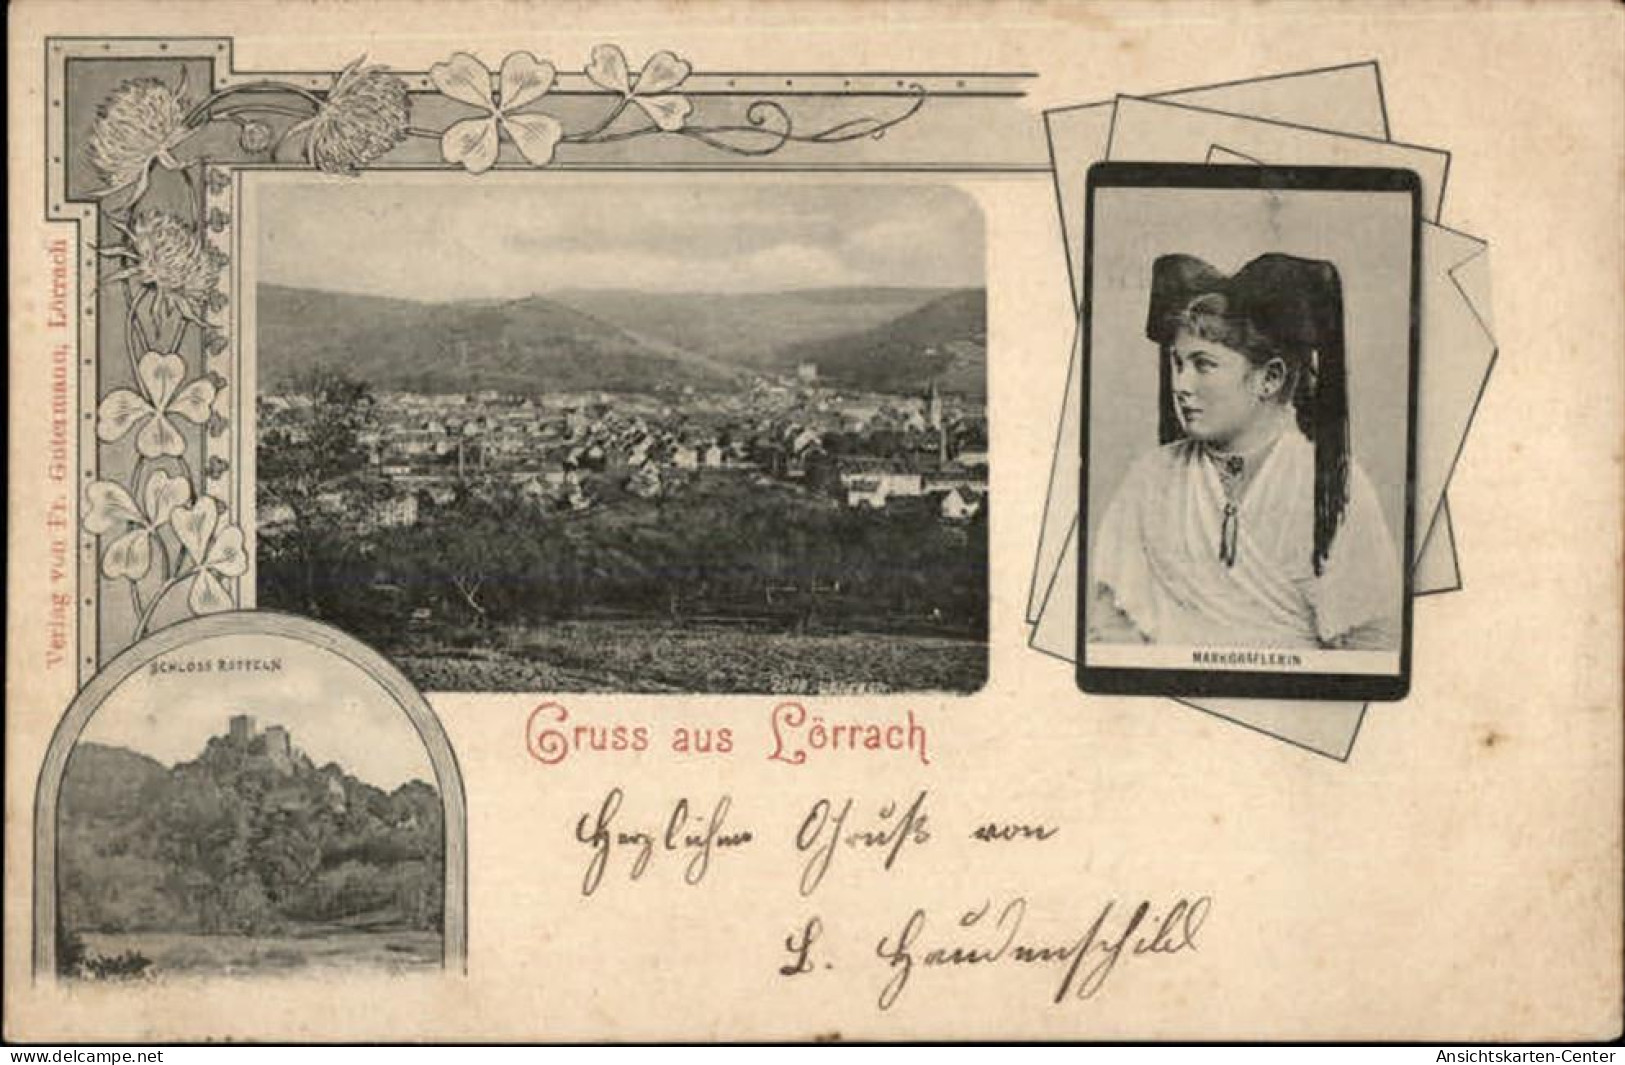 Verlag von Fr. Gutermann, Lörrach
SCHLOSS RÖTTELN
MARKGRÄFLERIN
Gruss aus Lörrach
Herzlichen Gruß von
L. Haudenschild
www.delcampe.net
Ansichtskarten-Center